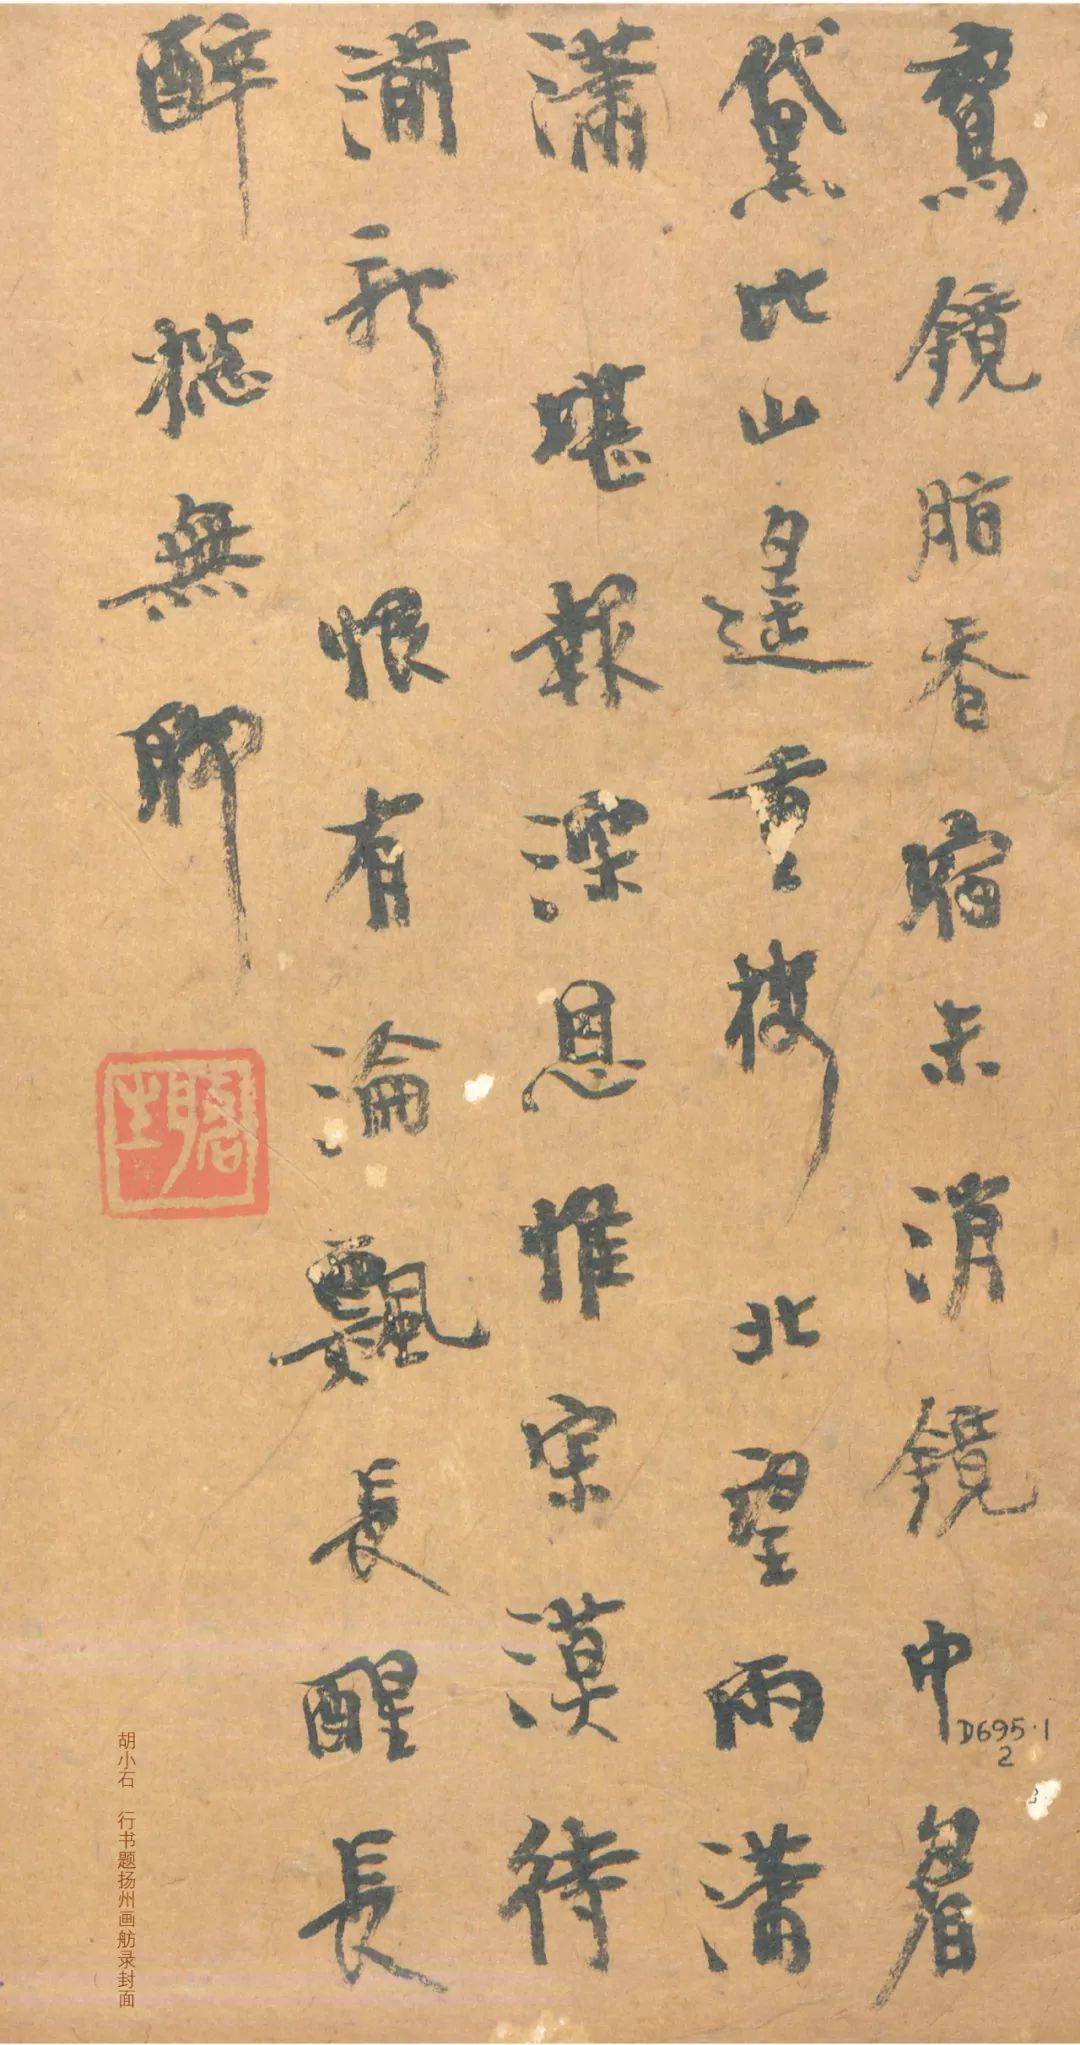 鴛鏡脂香未消鏡中眉
黛比山遥重樓北望雨瀟
瀟堪報深恩惟寂漠待
湔新恨有淪飄長醒長
醉總無聊
D695·1
2
胡小石 行书题扬州画舫录封面